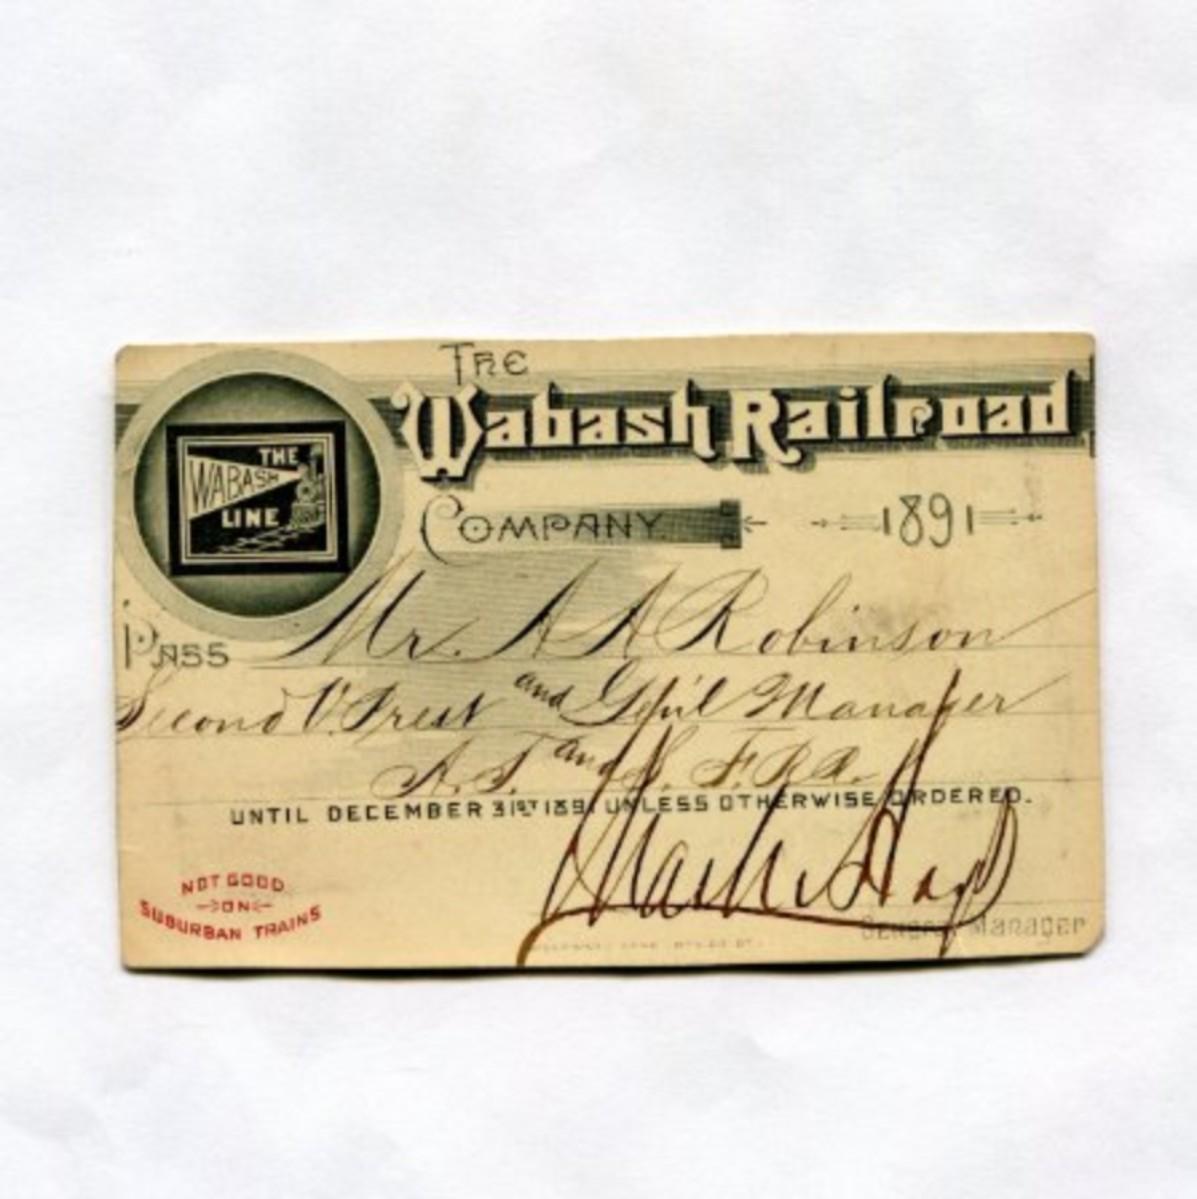 The
Wabash Railroad
Company 1891
THE
WABASH
LINE
Pass Mr. A A Robinson
Second V. Prest and Gen'l Manager
A. T. and S. F. R.R.
UNTIL DECEMBER 31ST 1891 UNLESS OTHERWISE ORDERED.
NOT GOOD
ON
SUBURBAN TRAINS
General Manager